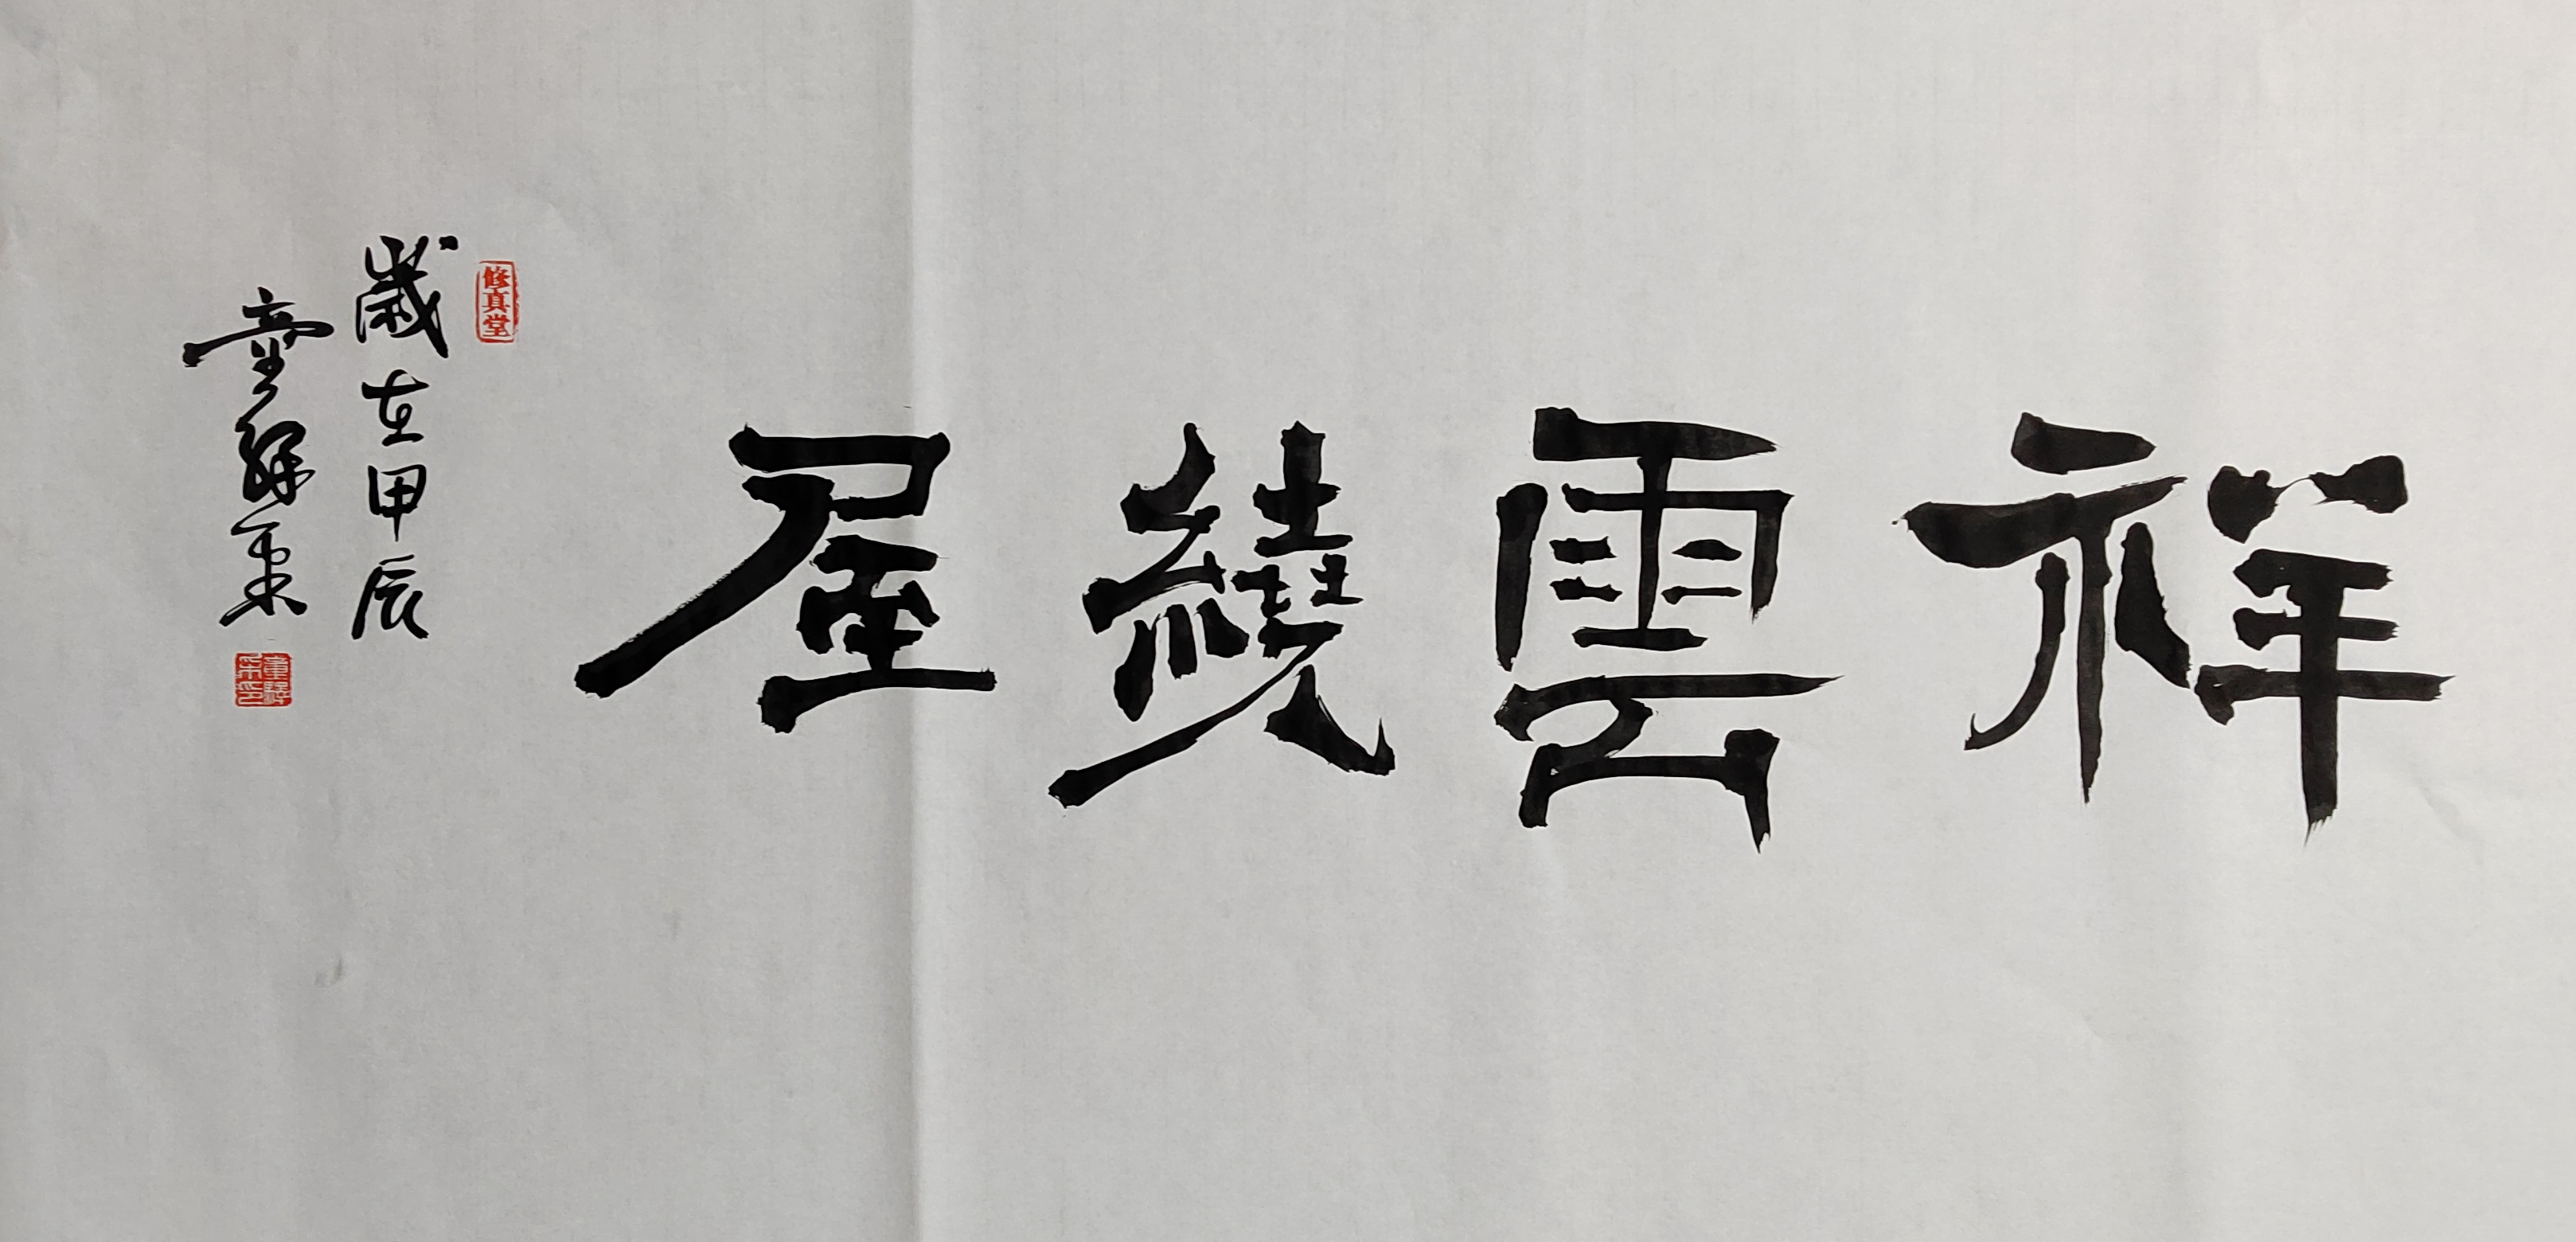 祥雲繞屋
修真堂
歲在甲辰
童繹東